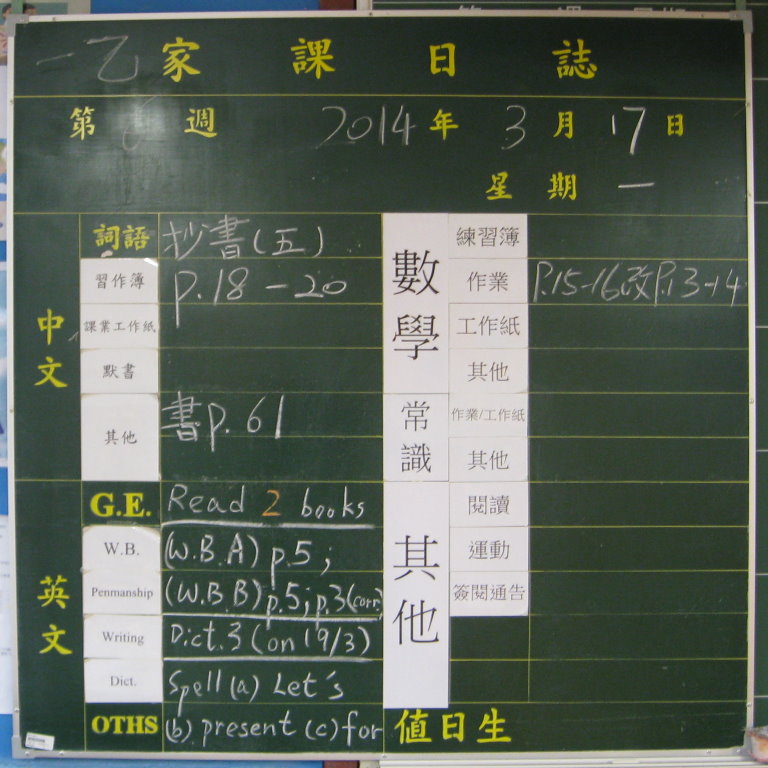 一乙家課日誌
第 週 2014年3月17日
星期一
中文
詞語 抄書(五)
習作簿 p.18-20
課業工作紙
默書
其他 書p.61
英文
G.E. Read 2 books
W.B. (W.B.A) p.5;
Penmanship (W.B.B) p.5; p.3(corr)
Writing Dict.3 (on 19/3)
Dict. Spell (a) Let's
OTHS (b) present (c) for
數學
練習簿
作業 P.15-16改P.13-14
工作紙
其他
常識
作業/工作紙
其他
其他
閱讀
運動
簽閱通告
值日生